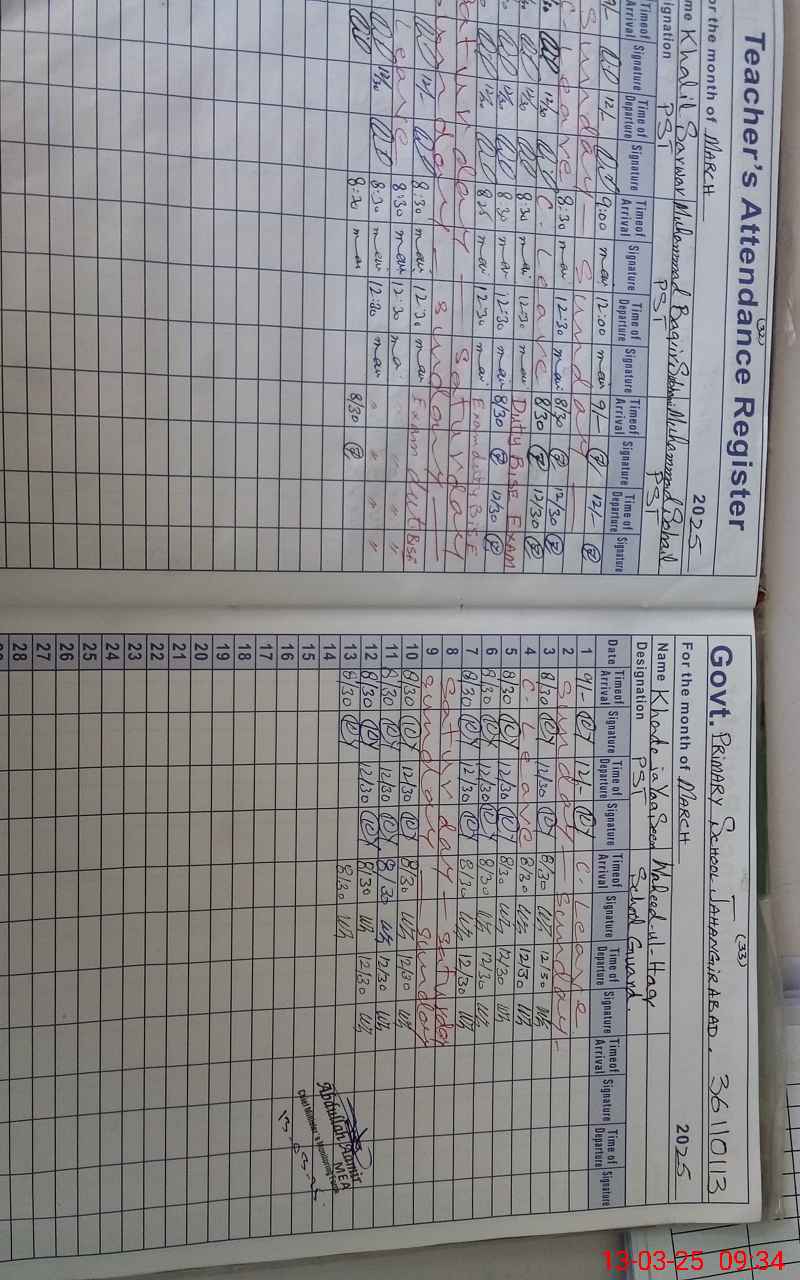 Teacher's Attendance Register
(32)
For the month of MARCH 2025
Name Khalil Sarwar Muhammad Baqir Muhammad Sohail
Designation PST PST PST
Time of Arrival Signature Time of Departure Signature Time of Arrival Signature Time of Departure Signature Time of Arrival Signature Time of Departure Signature
9/- 12/- 9:00 12:00 9/- 12/-
Sunday — Sunday —
C. Leave 8:30 12:30 8/30 12/30
12/30 C. Leave 8/30 12/30
12/30 8:30 12:30 Duty BISE EXAM
12/30 8:30 12:30 8/30 12/30
12/30 8:25 12:30 Exam duty BISE
Saturday — Saturday
Sunday — Sunday —
12/- 8:30 12:30 Exam duti BISE
Leave 8:30 12:30 " " " "
12/30 8:30 12:30 " " " "
8:30 8/30
(33)
Govt. PRIMARY SCHOOL JAHANGIRABAD. 36110113
For the month of MARCH 2025
Name Khadeja Yaseen Waheed-ul-Haq
Designation PST School Guard
Date Time of Arrival Signature Time of Departure Signature Time of Arrival Signature Time of Departure Signature Time of Arrival Signature Time of Departure Signature
1 9/- 12/- C. Leave
2 Sunday — Sunday —
3 8/30 12/30 8/30 12/30
4 C. Leave 8/30 12/30
5 8/30 12/30 8/30 12/30
6 8/30 12/30 8/30 12/30
7 8/30 12/30 8/30 12/30
8 Saturday — Saturday
9 Sunday — Sunday
10 8/30 12/30 8/30 12/30
11 8/30 12/30 8/30 12/30
12 8/30 12/30 8/30 12/30
13 8/30 8/30
14
15
16
17
18
19
20
21
22
23
24
25
26
27
28
Abdullah
MEA
13-03-25 09:34